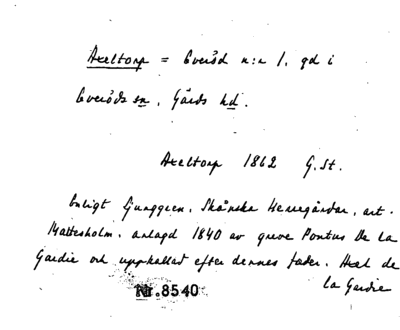 Axeltorp = Everöd n:r 1, gd i
Everöds sn, Gärds hd.
Axeltorp 1862 G.St.
Enligt Ljunggren, Skånska Herregårdar, art.
Maltesholm, anlagd 1840 av greve Pontus De la
Gardie och uppkallad efter dennes fader. Axel de
la Gardie
Nr.8540